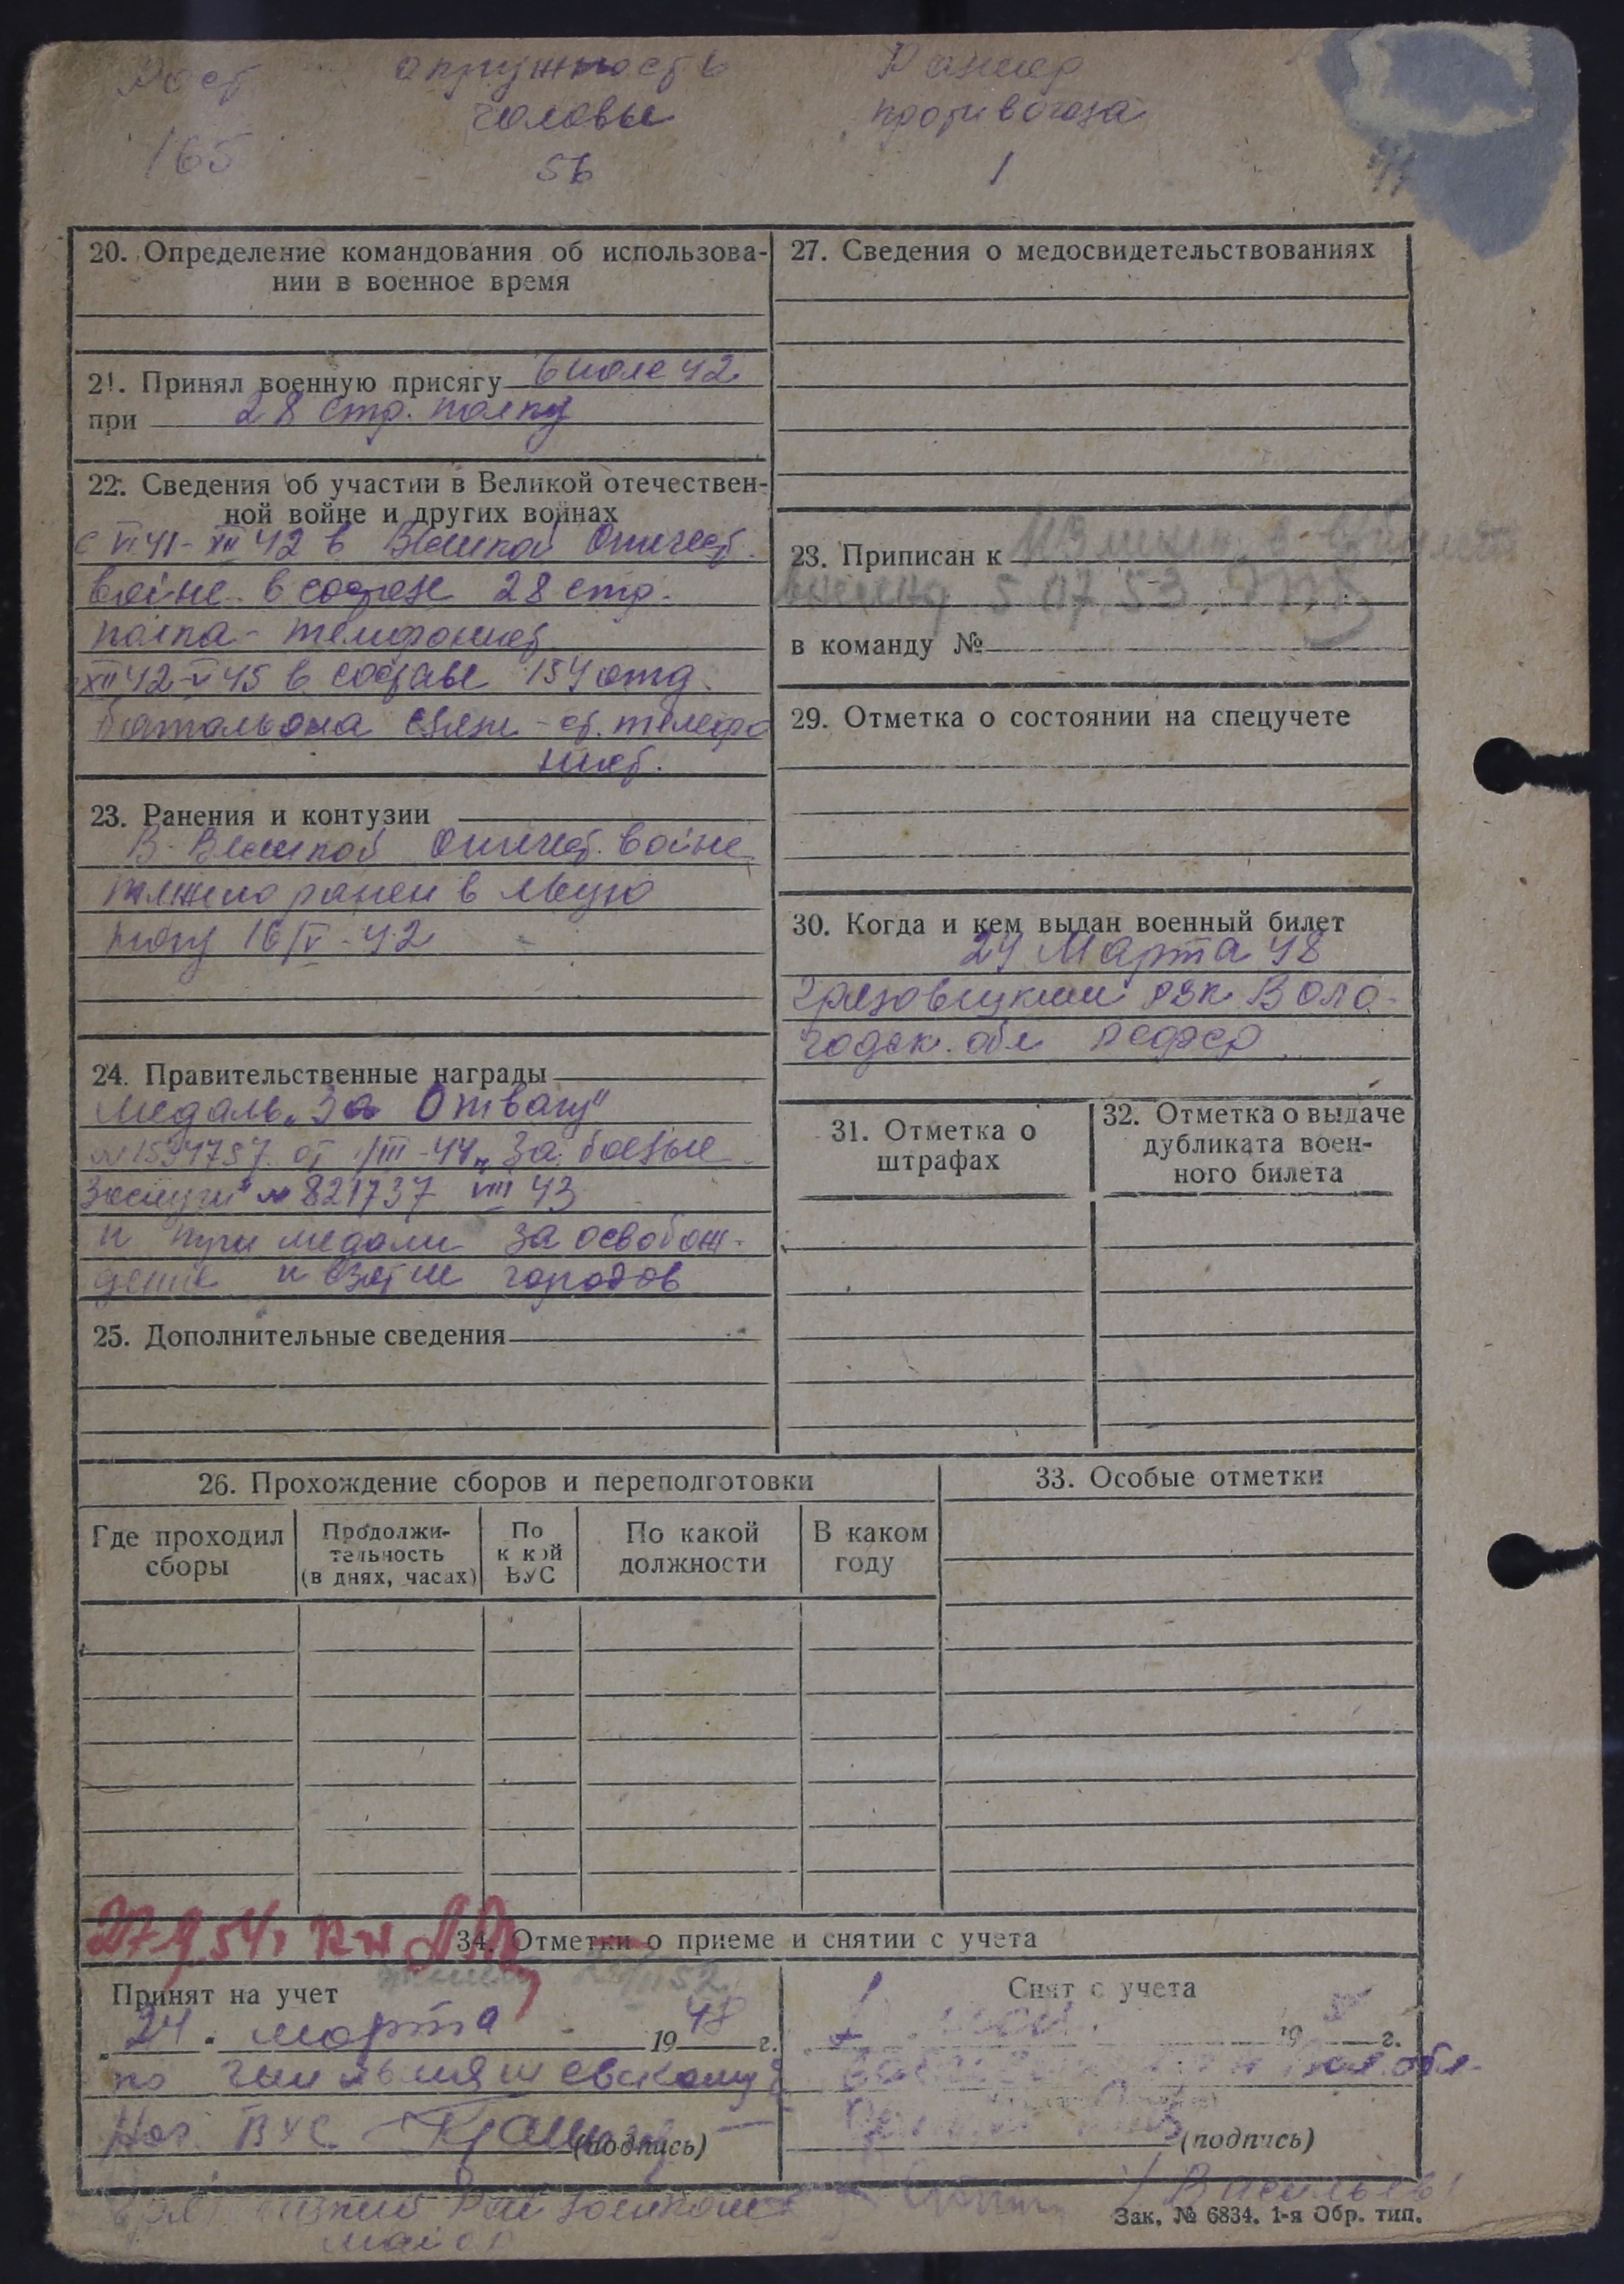 Рост окружность Размер
головы противогаза
165 56 1
20. Определение командования об использова-
нии в военное время
21. Принял военную присягу 42
при 28 стр. полку
22. Сведения об участии в Великой отечествен-
ной войне и других войнах
с VI 41 - XII 42 в Великой Отечест.
войне в составе 28 стр.
полка - телефонист
XII 42 - V 45 в составе 154 отд.
батальона связи - ст. телефо
нист.
23. Ранения и контузии
В Великой Отечест. войне
тяжело ранен в левую
ногу 16/V - 42
24. Правительственные награды
Медаль „За Отвагу"
от /III-44 „За боевые
Заслуги" № 821737 VIII 43
и три медали за освобож-
дение и взятие городов
25. Дополнительные сведения
27. Сведения о медосвидетельствованиях
23. Приписан к
5 07 53
в команду №
29. Отметка о состоянии на спецучете
30. Когда и кем выдан военный билет
24 Марта 48
Грязовецким РВК Воло-
годск. обл РСФСР
31. Отметка о
штрафах
32. Отметка о выдаче
дубликата воен-
ного билета
26. Прохождение сборов и переподготовки
Где проходил
сборы
Продолжи-
тельность
(в днях, часах)
По
к кой
ВУС
По какой
должности
В каком
году
33. Особые отметки
34. Отметки о приеме и снятии с учета
Принят на учет
„24. марта 1948 г.
по
Нач ВУС (подпись)
майор
Снят с учета
19 г.
обл.
(подпись)
/Васильев/
Зак. № 6834. 1-я Обр. тип.